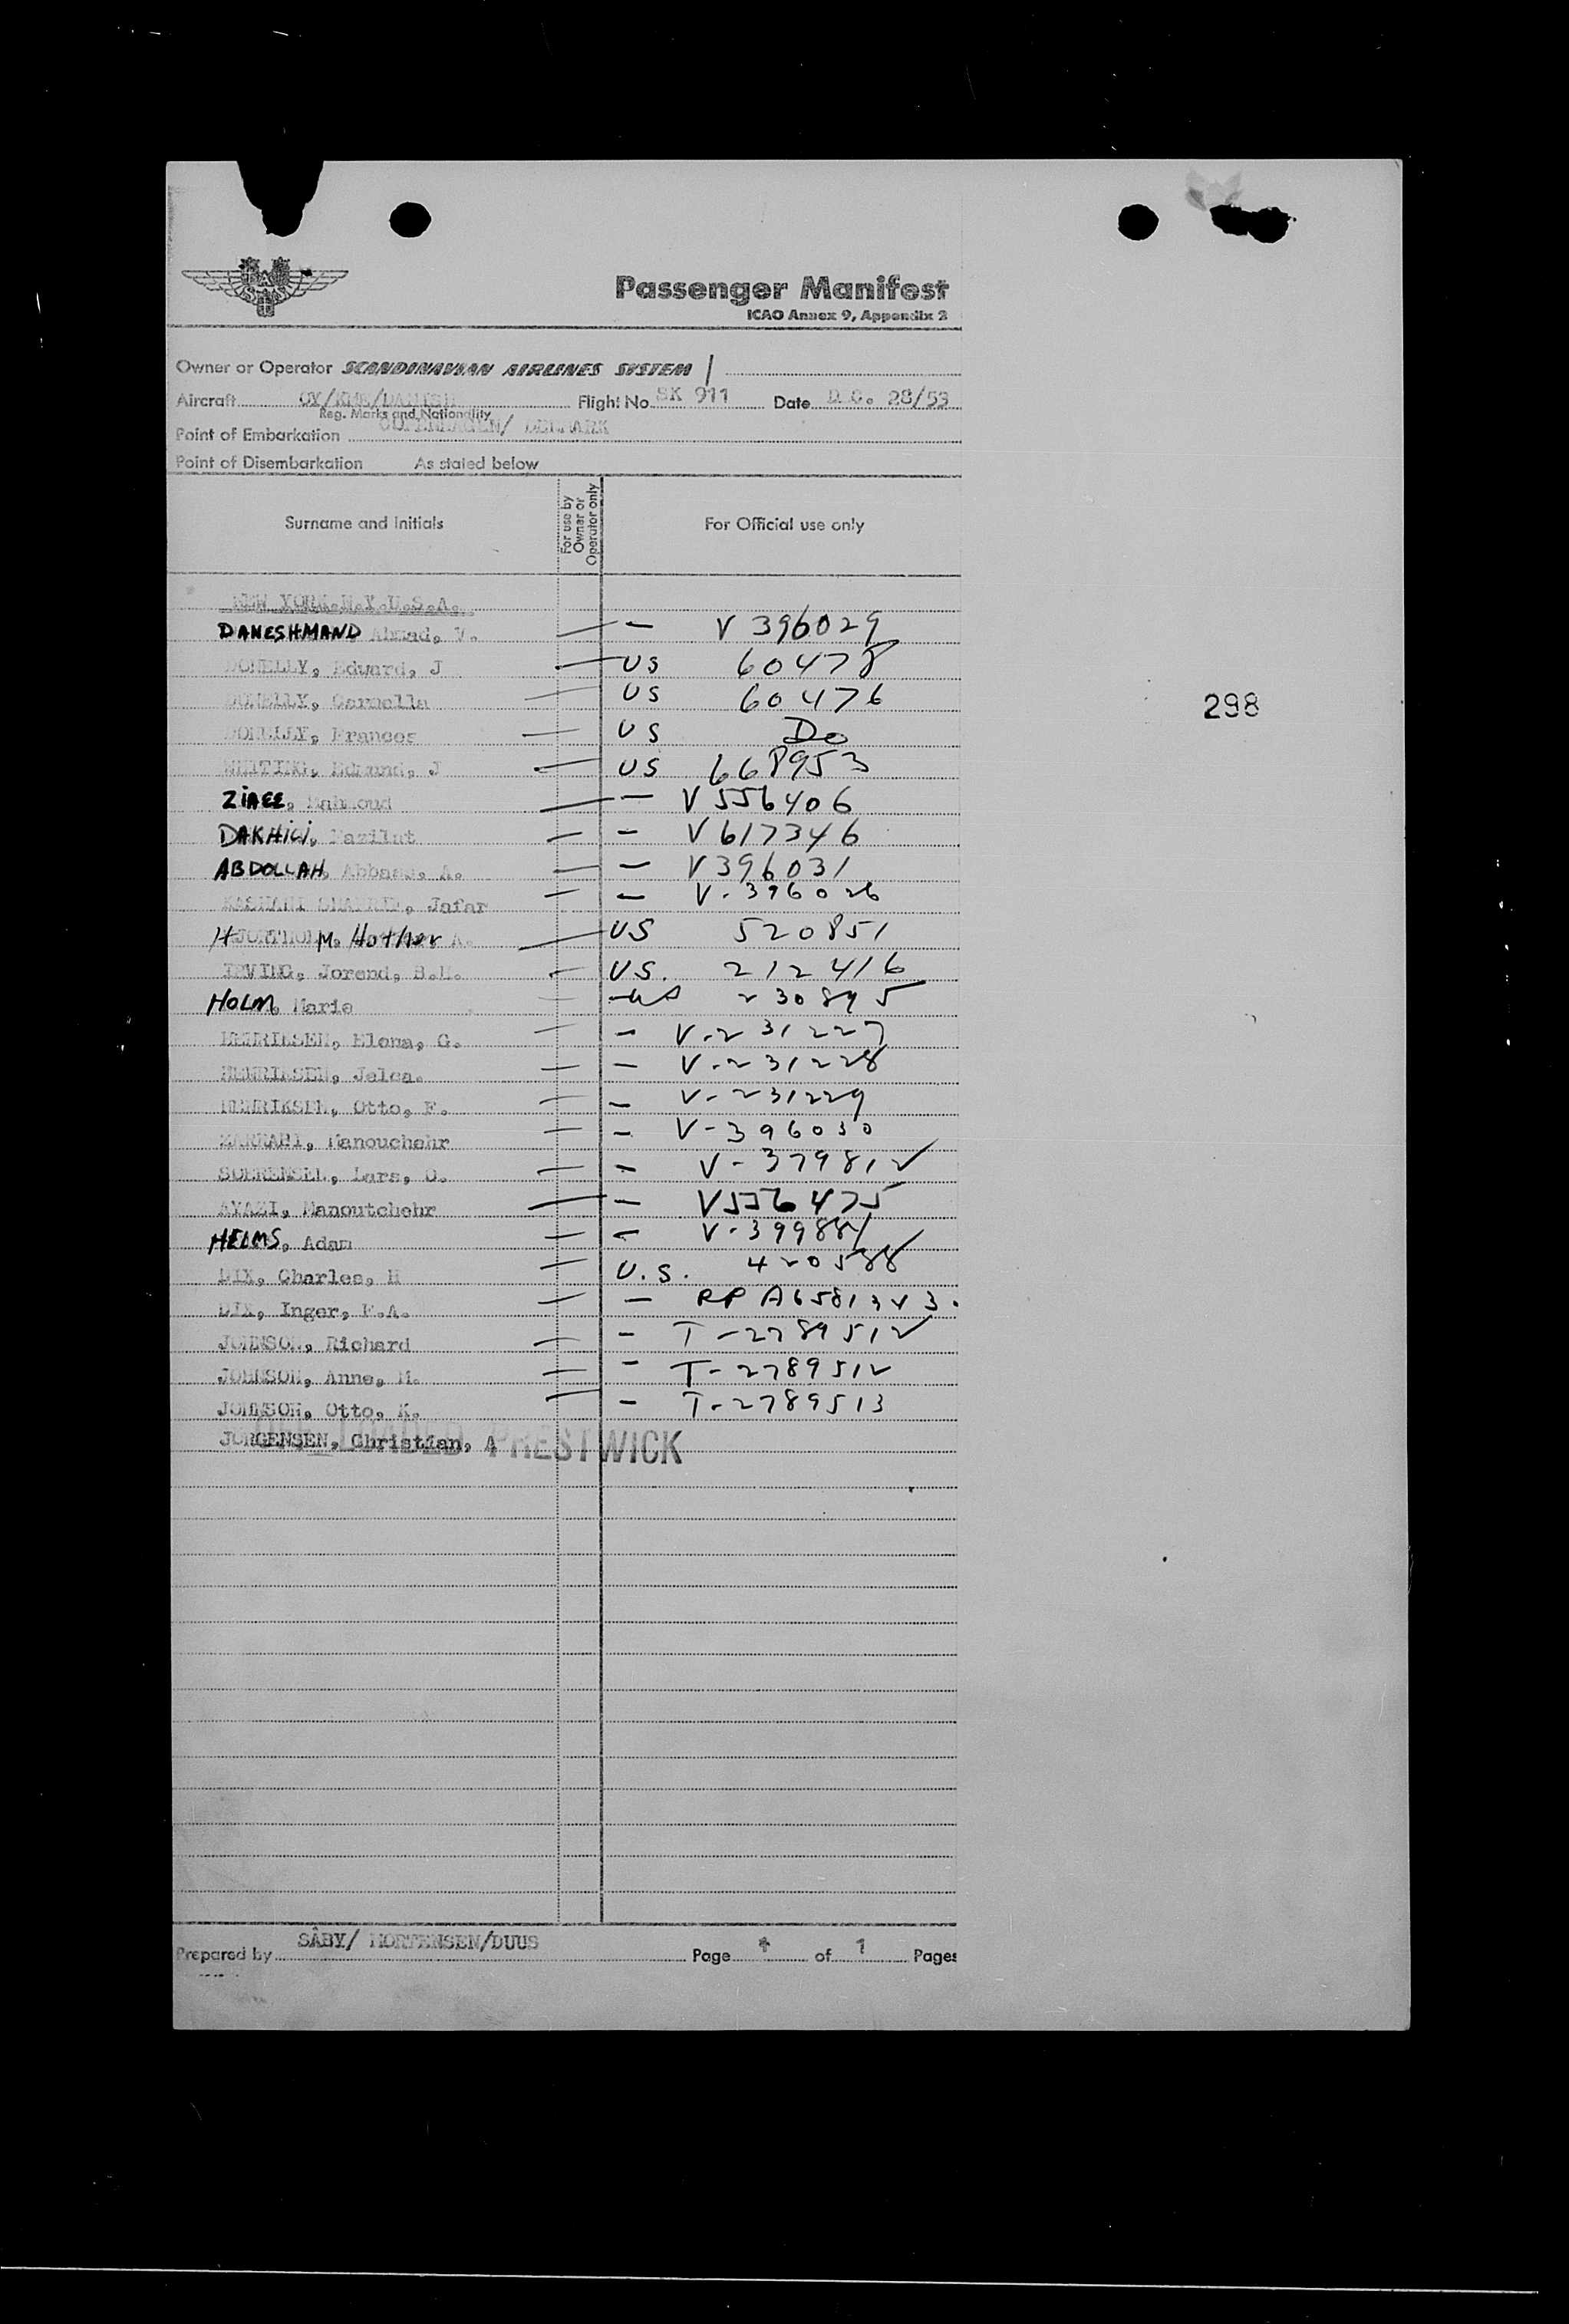 SAS
Passenger Manifest
ICAO Annex 9, Appendix 2
Owner or Operator SCANDINAVIAN AIRLINES SYSTEM
Aircraft OY/KME/DANISH Flight No SK 911 Date 28/53
Reg. Marks and Nationality
Point of Embarkation COPENHAGEN/ DENMARK
Point of Disembarkation As stated below
Surname and Initials For use by Owner or Operator only For Official use only
NEW YORK.N.Y.U.S.A.
DANESHMAND Ahmad, V. — V 396029
DONELLY, Edward, J US 60478
DONELLY, Carmella US 60476
DONELLY, Frances US Do
WHITING, Edmund, J US 668953
ZIAEE, Mahmoud — V 556406
DAKHILI, Fazilat — V 617346
ABDOLLAH, Abbass, A. — V 396031
Jafar — V-396026
M. Hother A. US 520851
IRVING, Jorend, B.M. US. 212416
HOLM, Marie US 230895
HENRIKSEN, Elena, G. — V-231227
HENRIKSEN, Jelca. — V-231228
HENRIKSEN, Otto, F. — V-231229
Manouchehr — V-396030
SOERENSEN, Lars, O. — V-379812
AYAZI, Manoutchehr — V 556475
HELMS, Adam — V-399881
DIX, Charles, H U.S. 420588
DIX, Inger, E.A. — RP A6581343.
JOHNSON, Richard — T-2789512
JOHNSON, Anne, M. — T-2789512
JOHNSON, Otto, K. — T-2789513
JORGENSEN, Christian, A
OFF LOADED PRESTWICK
298
Prepared by SÅBY/ MORTENSEN/DUUS Page 1 of 1 Pages